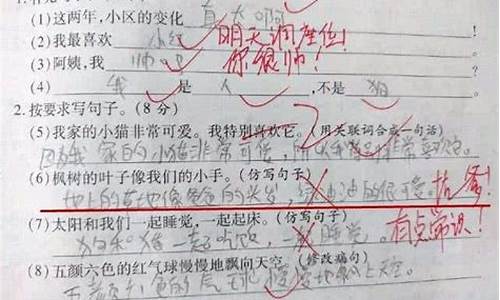 (1)这两年,小区的变化 真大啊
(2)我最喜欢 小红 明天调座位!
(3)阿姨,我 帅吧 你很帅!
(4) 我 是 人 ,不是 狗
2.按要求写句子。(8分)
(5)我家的小猫非常可爱。我特别喜欢它。(用关联词合成一句话)
因为我家的小猫非常可爱,所以我特别非常喜欢它。
(6)枫树的叶子像我们的小手。(仿写句子)
地上的草地像爸爸的头发,绿油油的很可爱。找爹!
(7)太阳和我们一起睡觉,一起起床。(仿写句子)
狗和猪一起吃饭,一起睡觉。 有点常识!
(8)五颜六色的红气球慢慢地飘向天空。(修改病句)
五颜六色的气球慢慢地飘上天空。